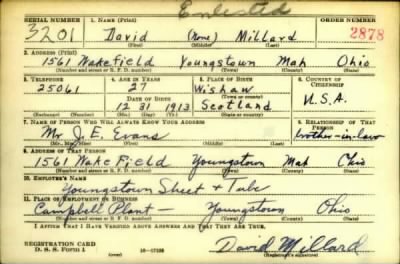 Enlisted
SERIAL NUMBER 1. NAME (Print) ORDER NUMBER
3201 David (None) Millard 2878
(First) (Middle) (Last)
2. ADDRESS (Print)
1561 Wakefield Youngstown Mah Ohio
(Number and street or R. F. D. number) (Town) (County) (State)
3. TELEPHONE 4. AGE IN YEARS 5. PLACE OF BIRTH 6. COUNTRY OF CITIZENSHIP
25061 27 Wishaw
DATE OF BIRTH (Town or county) U.S.A.
12 31 1913 Scotland
(Mo.) (Day) (Yr.) (State or country)
7. NAME OF PERSON WHO WILL ALWAYS KNOW YOUR ADDRESS 8. RELATIONSHIP OF THAT PERSON
Mr J. E. Evans brother-in-law
(Mr., Mrs., Miss) (First) (Middle) (Last)
9. ADDRESS OF THAT PERSON
1561 Wakefield Youngstown Mah Ohio
(Number and street or R. F. D. number) (Town) (County) (State)
10. EMPLOYER'S NAME
Youngstown Sheet + Tube
11. PLACE OF EMPLOYMENT OR BUSINESS
Campbell Plant — Youngstown Ohio
(Number and street or R. F. D. number) (Town) (County) (State)
I AFFIRM THAT I HAVE VERIFIED ABOVE ANSWERS AND THAT THEY ARE TRUE.
REGISTRATION CARD
D. S. S. Form 1 David Millard
(Registrant's signature)